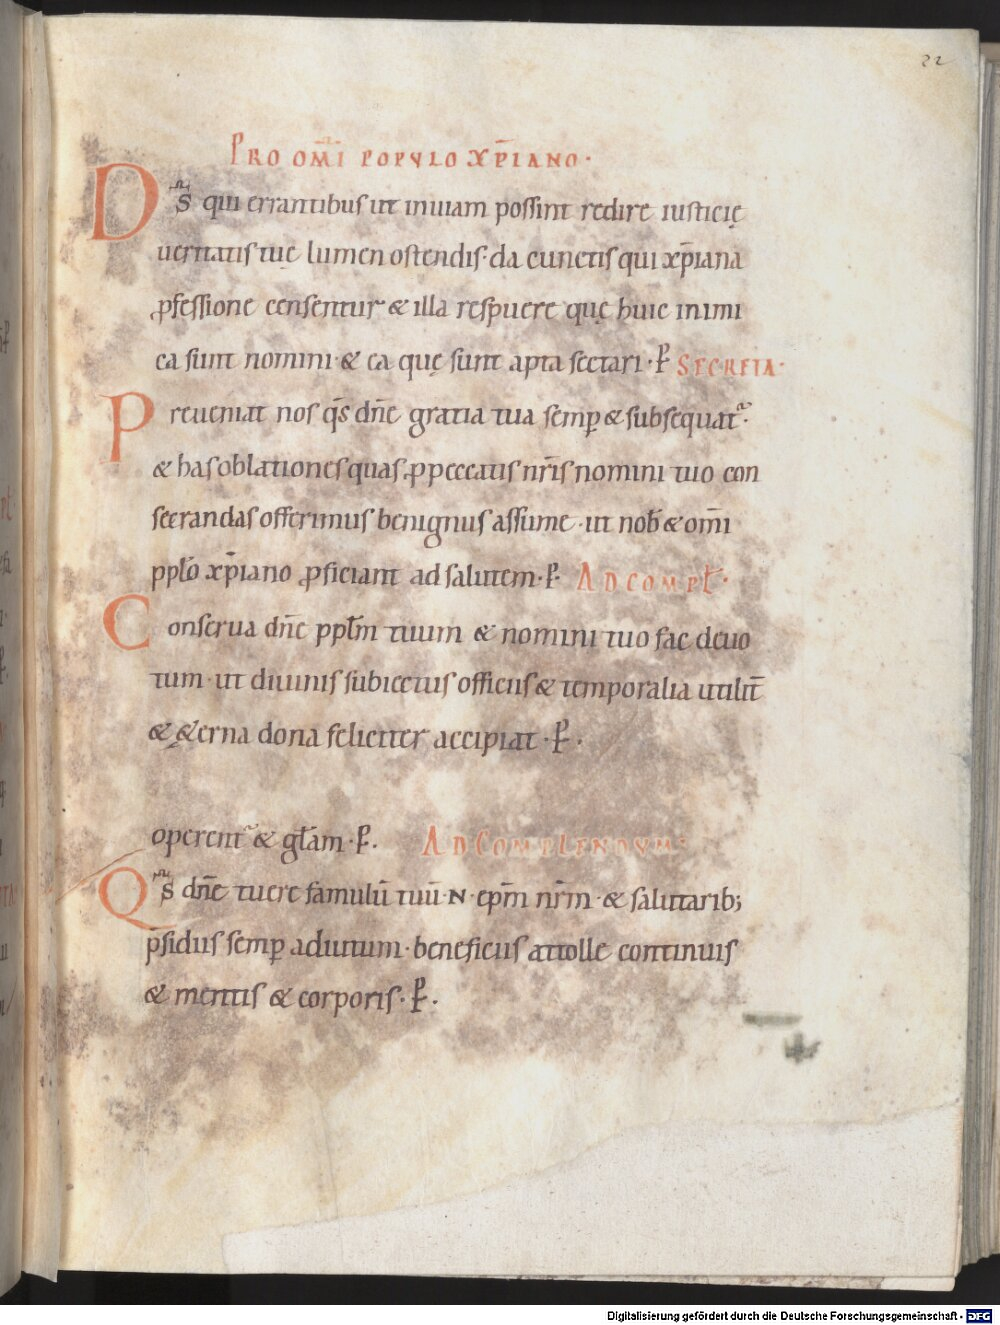 22
PRO OM̄I POPVLO XP̄IANO·
D̄s̄ qui errantibus ut in uiam possint redire iusticię
ueritatis tuę lumen ostendis· da cunctis qui xp̄iana
ꝓfessione censentur & illa respuere quę huic inimi
ca sunt nomini· & ea quę sunt apta sectari· P̄ SECRETA·
Preueniat nos q̄s dn̄e gratia tua semꝑ & subsequat̃·
& has oblationes quas ꝓ peccatis nr̄is nomini tuo con
secrandas offerimus benignus assume· ut nob̄ & om̄i
ppło xp̄iano ꝓficiant ad salutem· P̄· AD COMPŁ·
Conserua dn̄e ppłm tuum & nomini tuo fac deuo
tum· ut diuinis subiectus officiis & temporalia utilit̄
& &̨erna dona feliciter accipiat· P̄·
operent̃ & głam· P̄· AD COMPLENDVM·
Q̄s̄ dn̄e tuere famulū tuū· N· ep̄m nr̄m· & salutarib;
p̄sidiis semꝑ adiutum· beneficiis attolle continuis
& mentis & corporis· P̄·
Digitalisierung gefördert durch die Deutsche Forschungsgemeinschaft - DFG